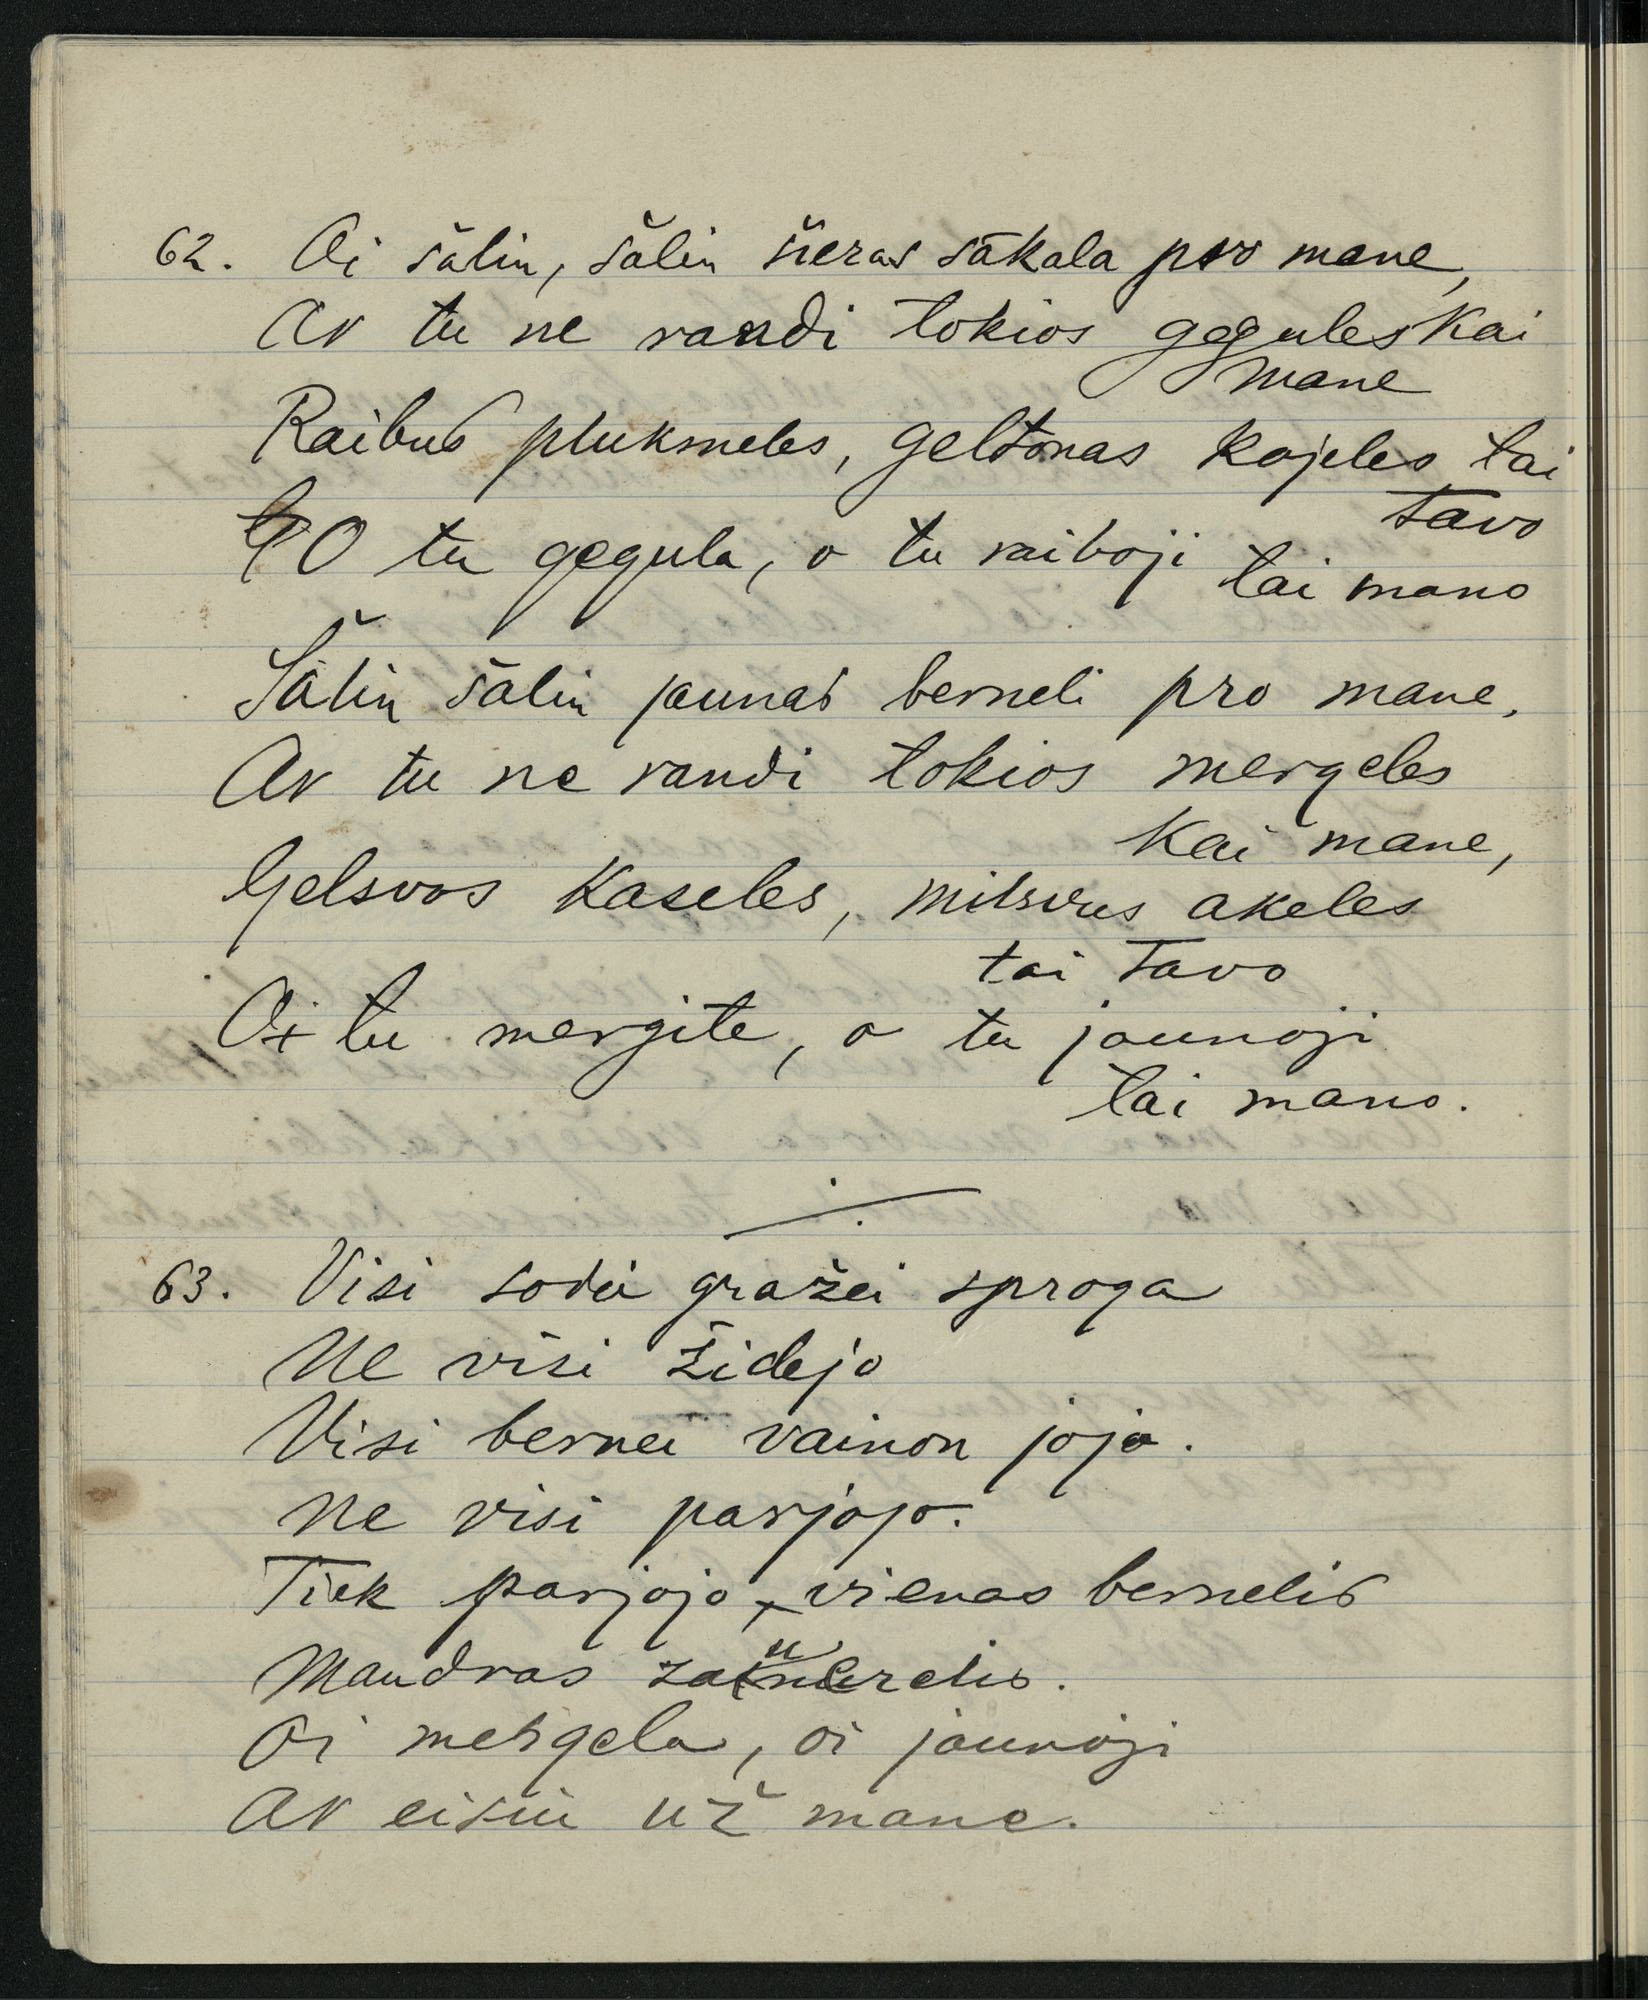 62. Oi šalin, šalin šieras sakala pro mane,
Ar tu ne randi tokios gegules kai
mane
Raibus plukmeles, geltonas kojeles tai
tavo
O tu gegula, o tu raiboji
tai mano
Šalin šalin jaunas berneli pro mane,
Ar tu ne randi tokios mergeles
kai mane,
Gelsvos kaseles, milsvus akeles
tai tavo
Oi tu mergite, o tu jaunoji
tai mano.
63. Visi sodai gražei sproga
Ne visi židejo
Visi bernei vainon jojo.
Ne visi parjojo.
Tiek parjojo vienas bernelis
Mandras
Oi mergela, oi jaunoji
Ar eisiu už mane.